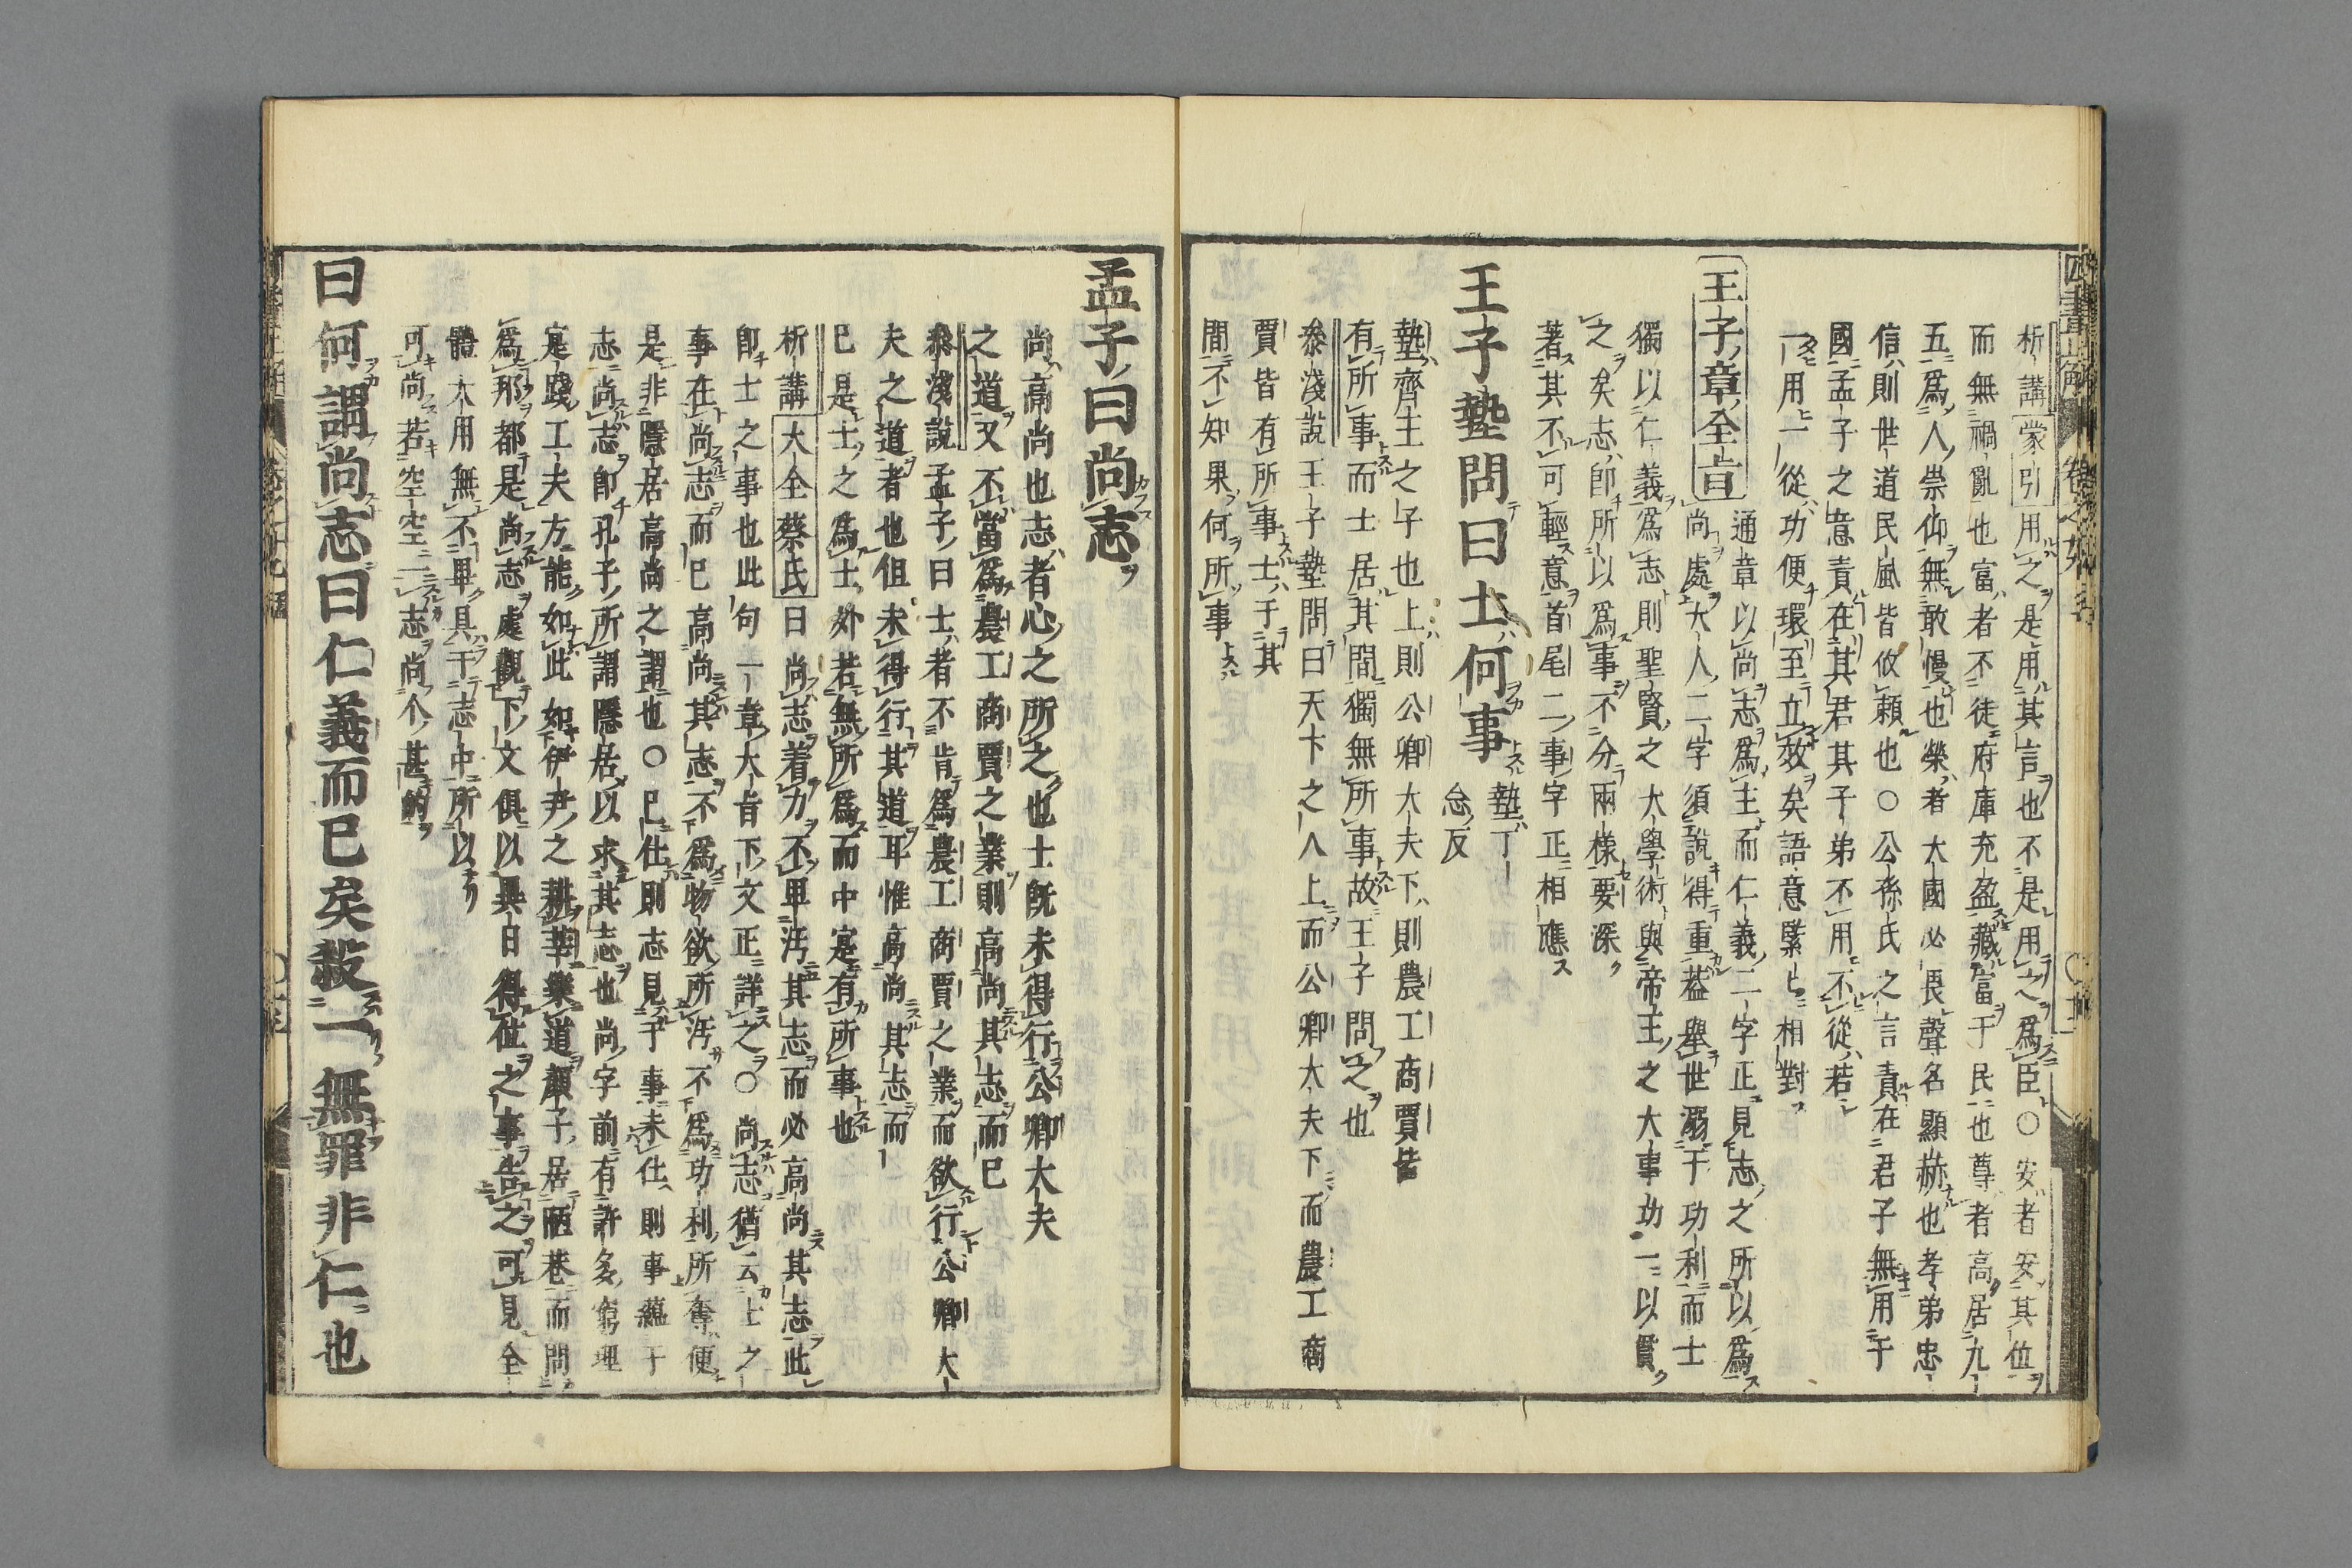 析講蒙引用之是用其言也不是用之爲臣○安者安其位
而無禍亂也富者不徒府庫充盈藏富于民也尊者高居九
五爲人崇仰無敢慢也榮者大國必畏聲名顯赫也孝弟忠
信則世道民風皆攸賴也○公孫氏之言責在君子無用于
國孟子之意責在其君其子弟不用不從若
一用一從功便環至立效矣語意緊上相對
王子章全旨
通章以尚志爲主而仁義二字正見志之所以爲
尚處大人二字須說得重蓋舉世溺于功利而士
獨以仁義爲志則聖賢之大學術與帝王之大事功一以貫
之矣志卽所以爲事不分兩樣要深
著其不可輕意首尾二事字正相應
王子墊問曰士何事
墊丁
念反
墊齊王之子也上則公卿大夫下則農工商賈皆
有所事而士居其間獨無所事故王子問之也
叅淺說王子墊問曰天下之人上而公卿大夫下而農工商
賈皆有所事士于其
間不知果何所事
孟子曰尚志
尚高尚也志者心之所之也士旣未得行公卿大夫
之道又不當爲農工商賈之業則高尚其志而已
叅淺說孟子曰士者不肯爲農工商賈之業而欲行公卿大
夫之道者也但未得行其道耳惟高尚其志而
已是士之爲士外若無所爲而中寔有所事也
析講大全蔡氏曰尚志着力不卑汚其志而必高尚其志此
卽士之事也此句一章大旨下文正詳之○尚志猶云士之
事在尚志而已高尚其志不爲物欲所汚不爲功利所奪便
是非隱居高尚之謂也○已仕則志見于事未仕則事蘊于
志尚志卽孔子所謂隱居以求其志也尚字前有許多窮理
寔踐工夫方能如此如伊尹之耕莘樂道顏子居陋巷而問
爲邦都是尚志處觀下文俱以異日得位之事告之可見全
體大用無不畢具于志中所以
可尚若空空一志尚个甚的
曰何謂尚志曰仁義而已矣殺一無罪非仁也